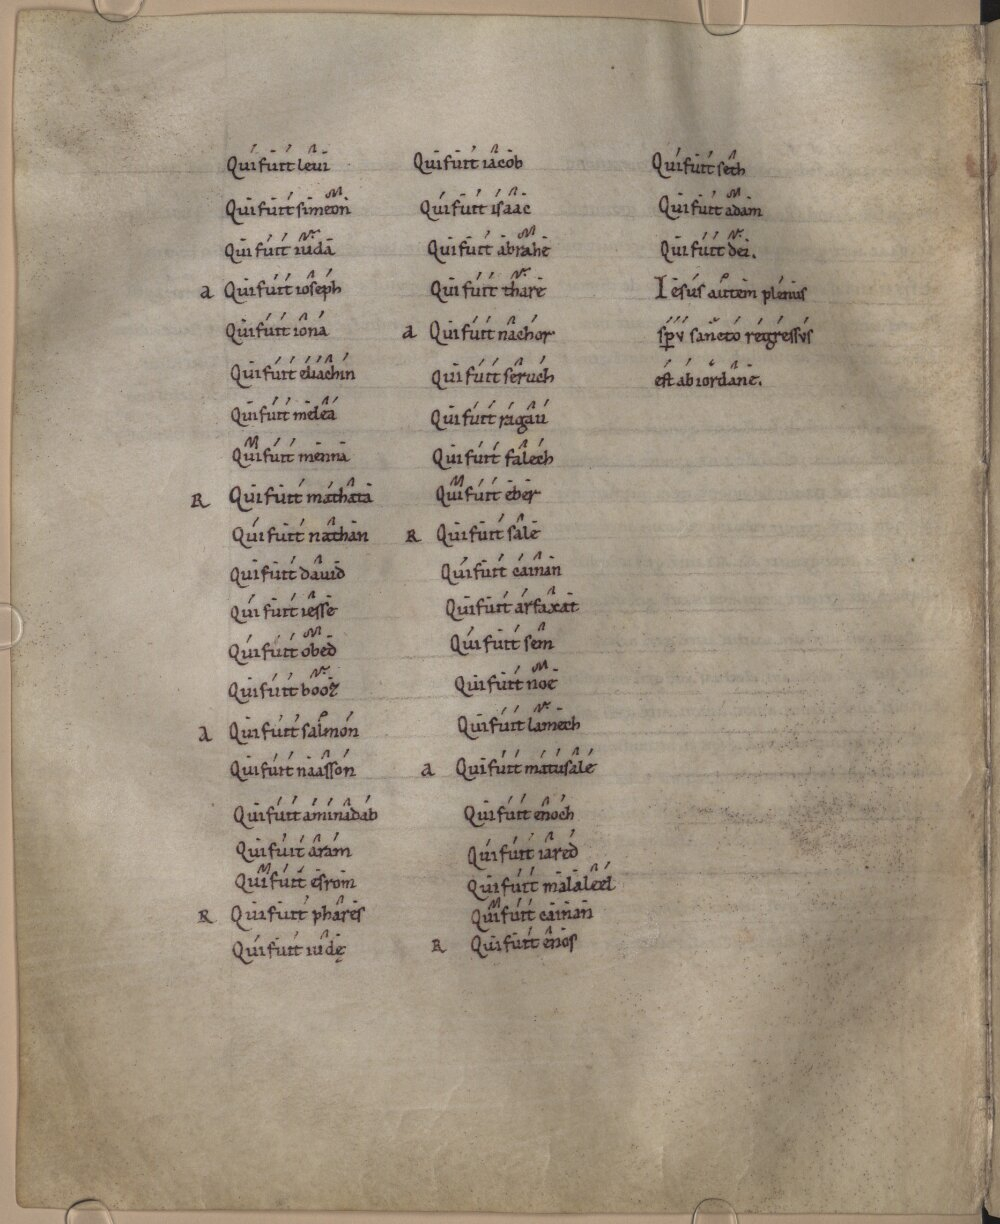 Qui fuit levi
Qui fuit simeon
Qui fuit iuda
a Qui fuit ioseph
Qui fuit iona
Qui fuit eliachin
Qui fuit melea
Qui fuit menna
R Qui fuit mathata
Qui fuit nathan
Qui fuit david
Qui fuit iesse
Qui fuit obed
Qui fuit booz
a Qui fuit salmon
Qui fuit naasson
Qui fuit aminadab
Qui fuit aram
Qui fuit esrom
R Qui fuit phares
Qui fuit iudę
Qui fuit iacob
Qui fuit isaac
Qui fuit abrahe
Qui fuit thare
a Qui fuit nachor
Qui fuit seruch
Qui fuit ragau
Qui fuit falech
Qui fuit eber
R Qui fuit sale
Qui fuit cainan
Qui fuit arfaxat
Qui fuit sem
Qui fuit noe
Qui fuit lamech
a Qui fuit matusale
Qui fuit enoch
Qui fuit iared
Qui fuit malaleel
Qui fuit cainan
R Qui fuit enos
Qui fuit seth
Qui fuit adam
Qui fuit dei.
Iesus autem plenus
spu sancto regressus
est ab iordane.